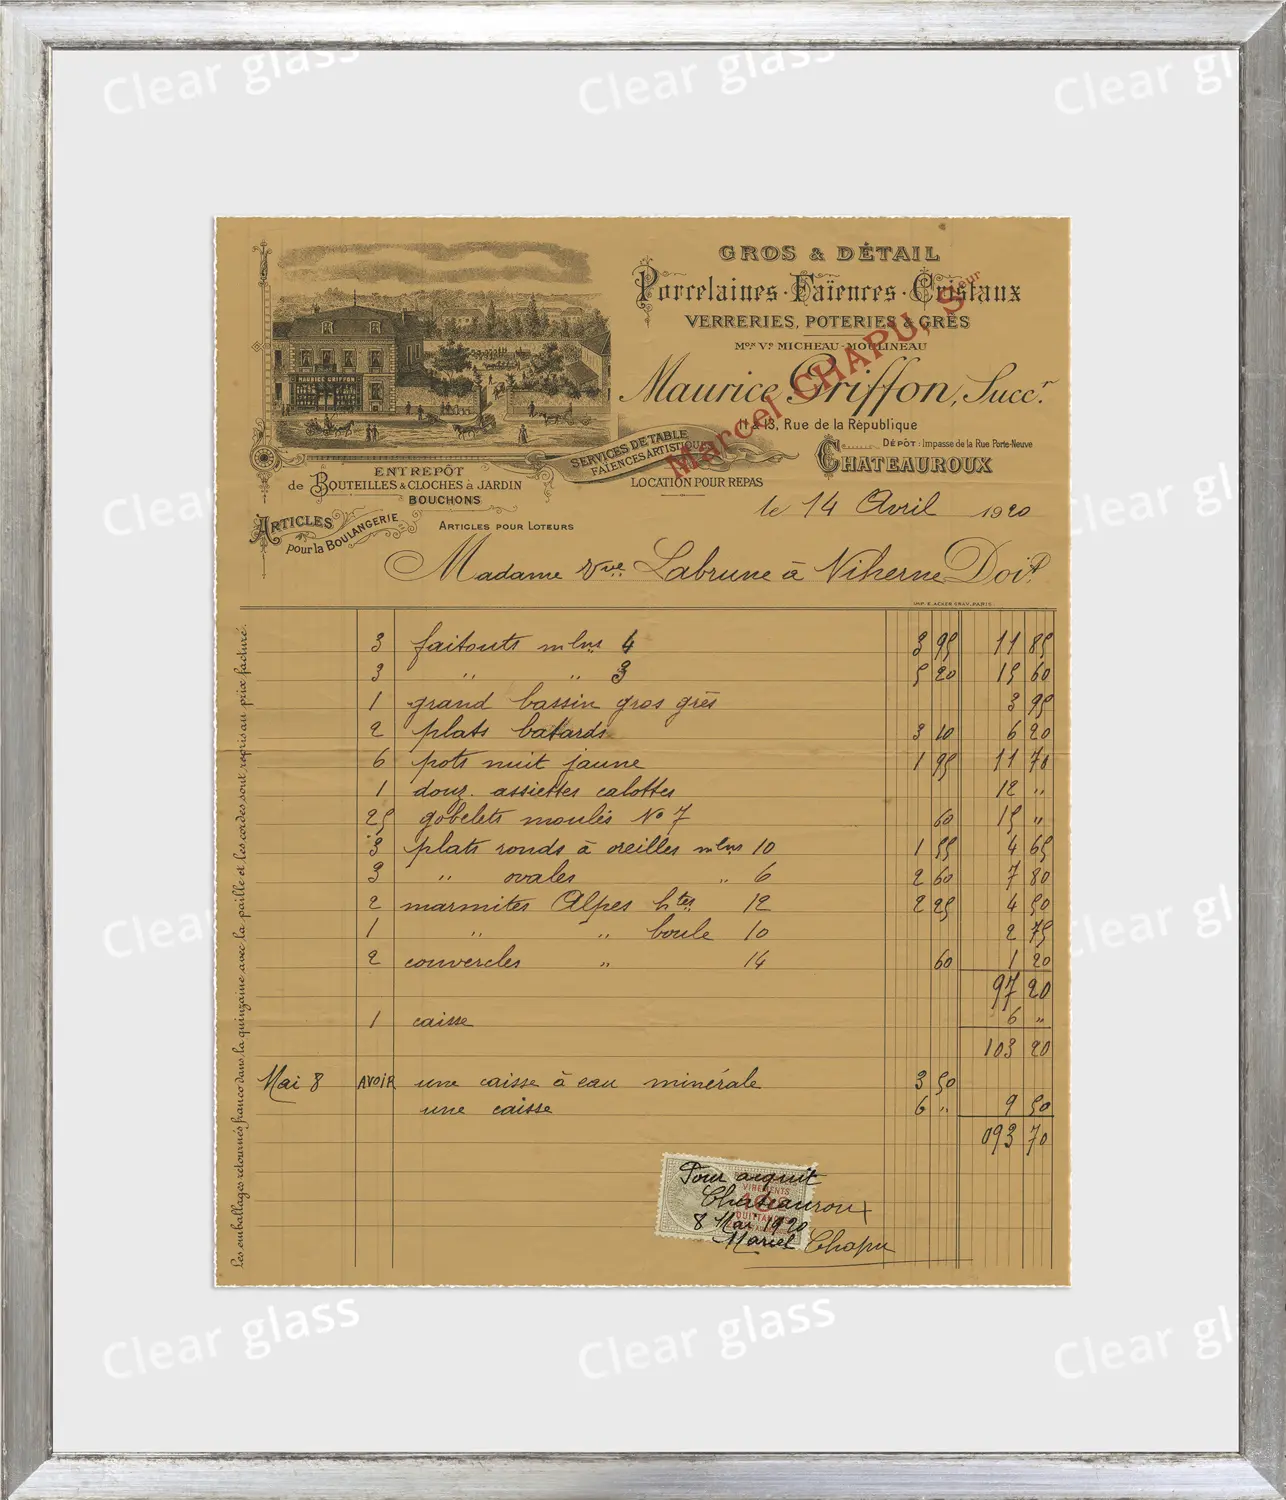 Clear glass Clear glass Clear gl
GROS & DÉTAIL
Porcelaines · Faïences · Cristaux
VERRERIES, POTERIES & GRÈS
Mon Ve MICHEAU-MOULINEAU
Maurice Griffon, Succr.
Marcel CHAPU, Sseur
11 & 13, Rue de la République
DÉPÔT : Impasse de la Rue Porte-Neuve
CHATEAUROUX
MAURICE GRIFFON
SERVICES DE TABLE
FAÏENCES ARTISTIQUES
LOCATION POUR REPAS
ENTREPÔT
de BOUTEILLES & CLOCHES à JARDIN
BOUCHONS
ARTICLES pour la BOULANGERIE
ARTICLES POUR LOTEURS
le 14 Avril 1920
Madame Vve Labrune à Niherne Doit
IMP. E. ACKER GRAV. PARIS
Les emballages retournés franco dans la quinzaine avec la paille et les cordes sont repris au prix facturé.
3 faitouts mlns 4 3 95 11 85
3 " " 3 5 20 15 60
1 grand bassin gros grès 3 95
2 plats batards 3 10 6 20
6 pots nuit jaune 1 95 11 70
1 douz. assiettes calottes 12 "
25 gobelets moulés No 7 60 15 "
3 plats ronds à oreilles mlns 10 1 55 4 65
3 " ovales " 6 2 60 7 80
2 marmites Alpes htes 12 2 25 4 50
1 " " boule 10 2 75
2 couvercles " 14 60 1 20
97 20
1 caisse 6 "
103 20
Mai 8 AVOIR une caisse à eau minérale 3 50
une caisse 6 " 9 50
093 70
Pour acquit
Chateauroux
8 Mai 1920
Marcel Chapu
Clear glass Clear glass Clear gl